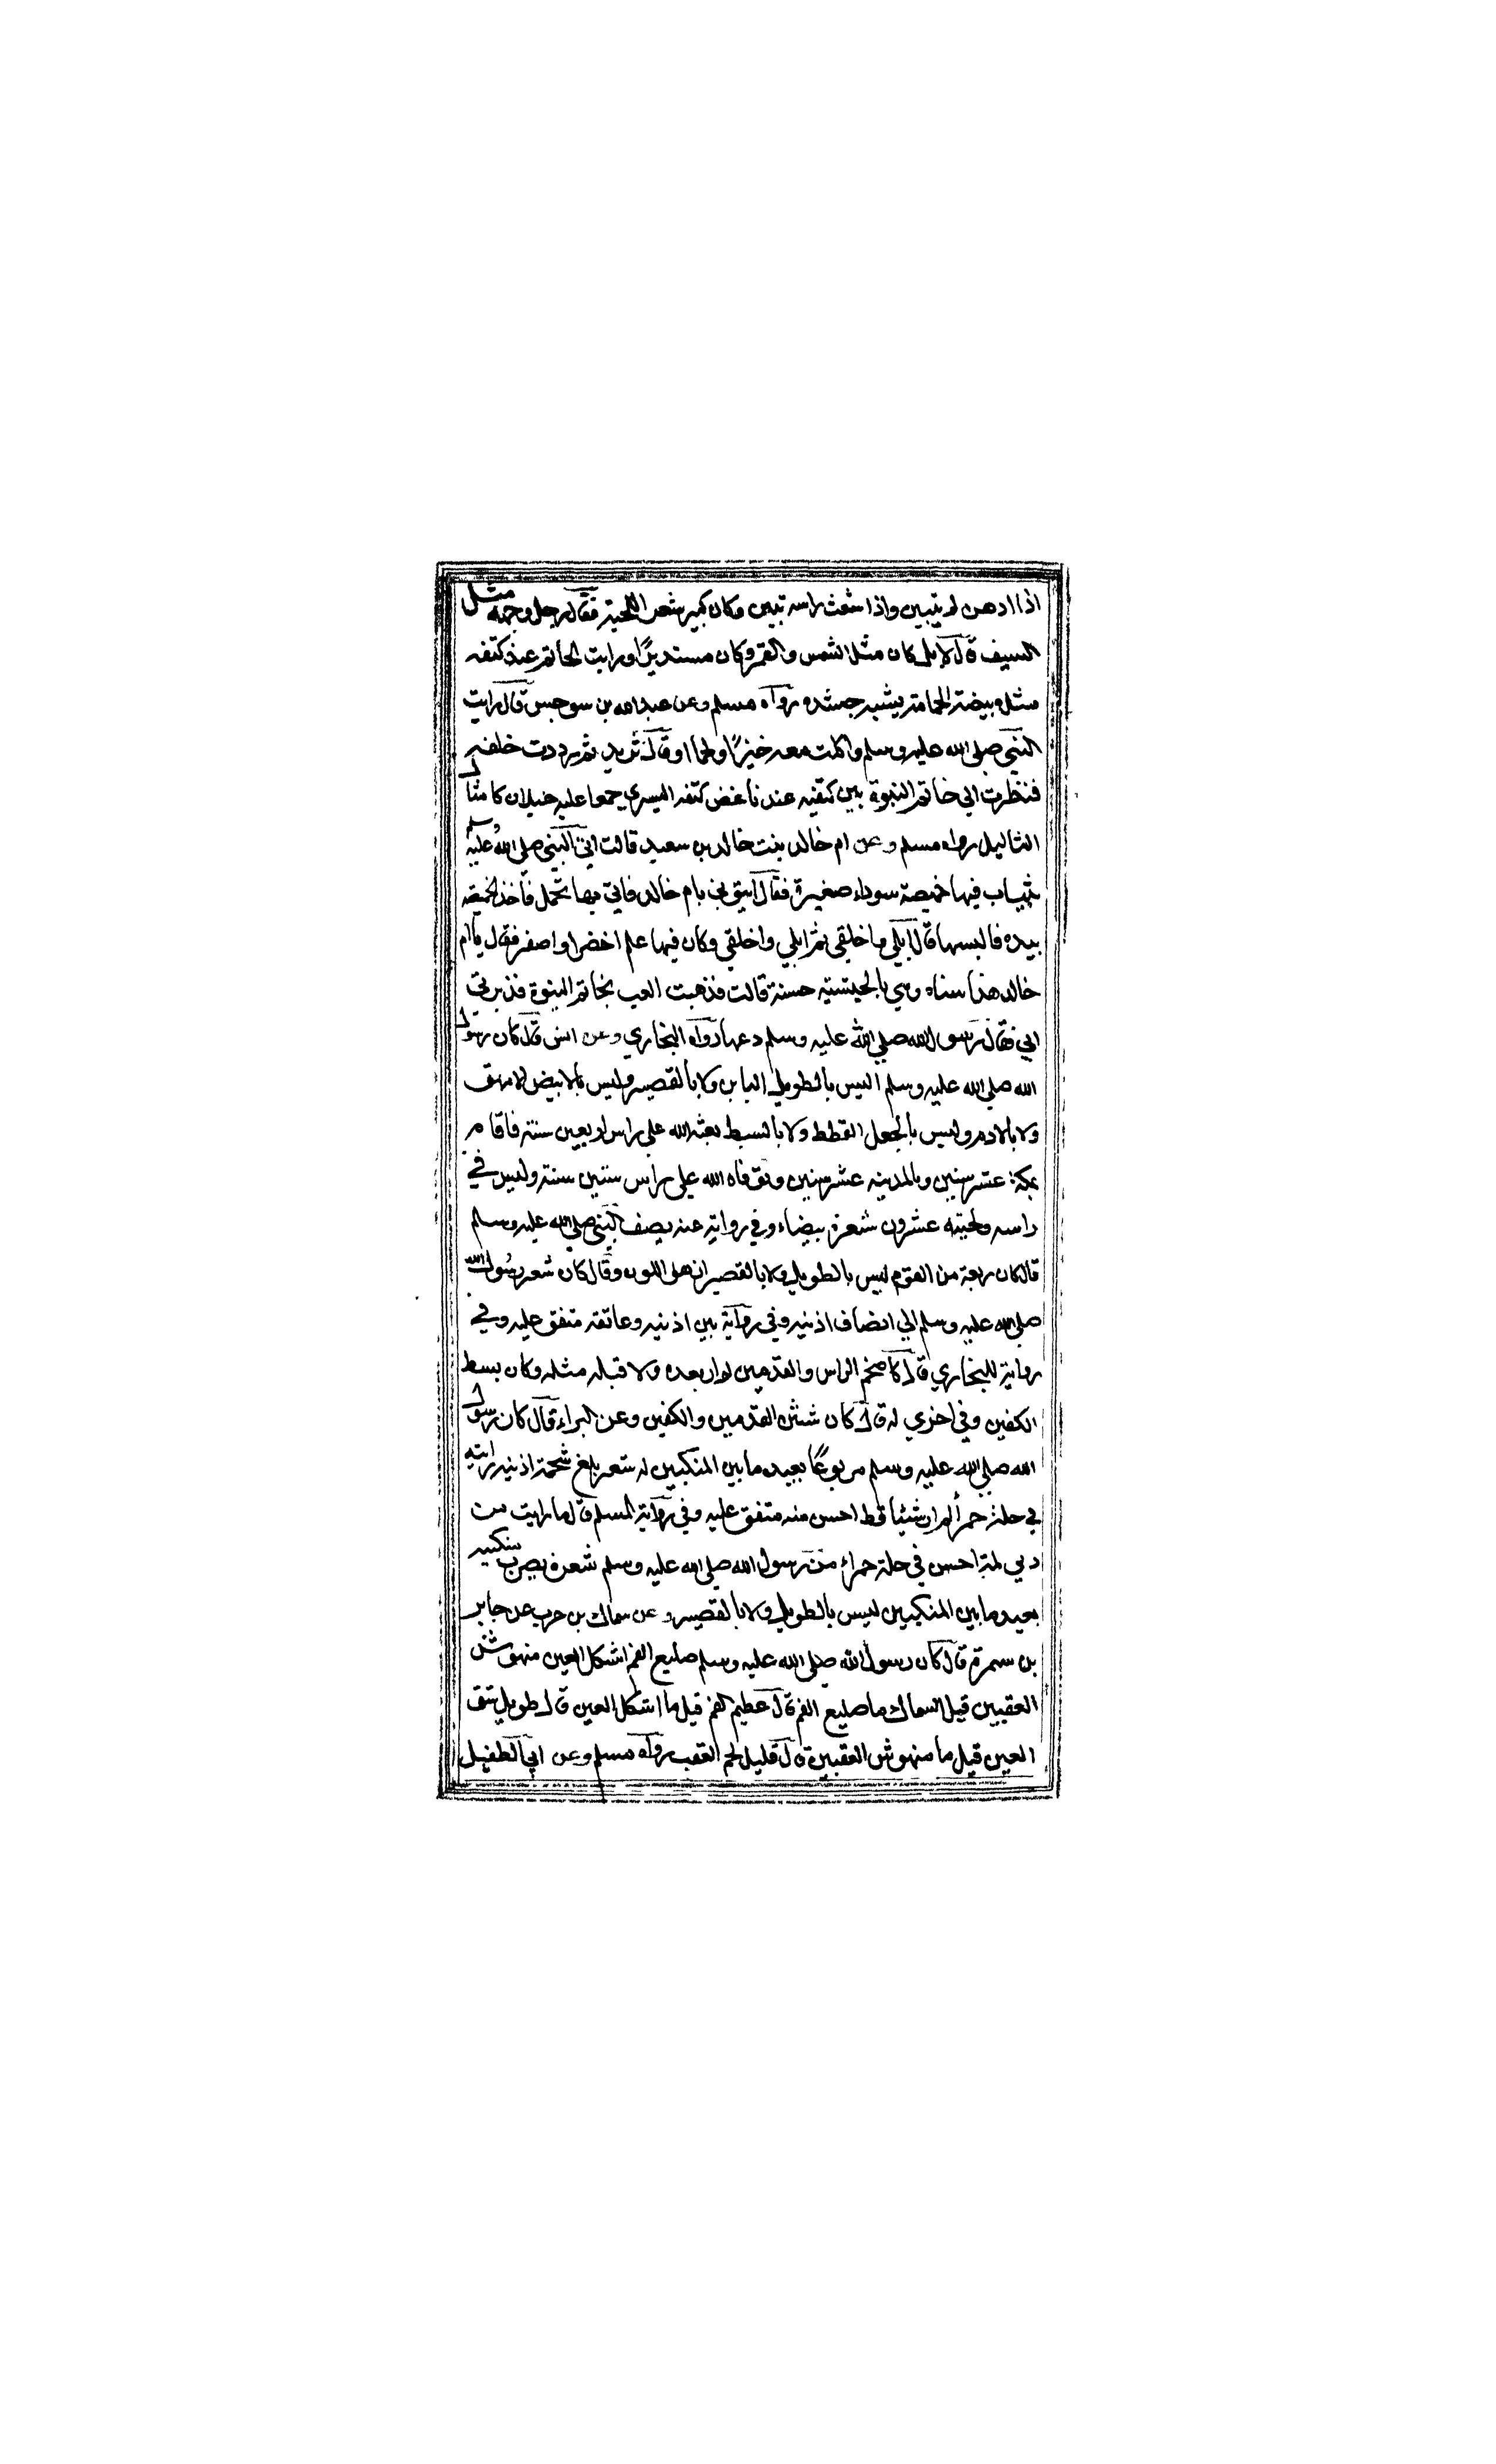 اذا ادهن لم يتبين واذا شعث راسه تبين وكان كثير شعر اللحية فقال رجل وجهه مثل
السيف قال لا بل كان مثل الشمس والقمر وكان مستديرًا ورايت الخاتم عند كتفه
مثل بيضة الحمامة يشبه جسده رواه مسلم وعن عبد الله بن سرجس قال رايت
النبي صلى الله عليه وسلم واكلت معه خبزًا ولحما او قال ثريد ثم درت خلفه
فنظرت الي خاتم النبوة بين كتفيه عند ناغض كتفه اليسري جمعا عليه خيلان كامثال
الثاليل رواه مسلم وعن ام خالد بنت خالد بن سعيد قالت اتي النبي صلى الله عليه وسلم
بثياب فيها خميصة سوداء صغيرة فقال ايتوني بام خالد فاتي بها تحمل فاخذ الخميصة
بيده فالبسها قال ابلي واخلقي ثم ابلي واخلقي وكان فيها علم اخضر او اصفر فقال يا ام
خالد هذا سناه وهي بالحبشية حسنة قالت فذهبت العب بخاتم النبوة فزبرني
ابي فقال رسول الله صلي الله عليه وسلم دعها رواه البخاري وعن انس قال كان رسول
الله صلي الله عليه وسلم اليس بالطويل الباين ولا بالقصير وليس بالابيض الامهق
ولا بالادم وليس بالجعد القطط ولا بالسبط بعثه الله علي راس اربعين سنة فاقام
بمكة عشر سنين وبالمدينه عشر سنين وتوفاه الله علي راس ستين سنة وليس في
راسه ولحيته عشرون شعرة بيضاء وفي رواية عنه يصف النبي صلي الله عليه وسلم
قال كان ربعة من القوم ليس بالطويل ولا بالقصير ازهر اللون وقال كان شعر رسول الله
صلي الله عليه وسلم الي انصاف اذنيه وفي رواية بين اذنيه وعاتقه متفق عليه وفي
رواية للبخاري قال كا ضخم الراس والقدمين لم ار بعده ولا قبله مثله وكان بسط
الكفين وفي اخري له قال كان شثن القدمين والكفين وعن البراء قال كان رسول
الله صلي الله عليه وسلم مربوعًا بعيد ما بين المنكبين له شعر بلغ شحمة اذنيه رايته
في حلة حمرا لم ار شئيا قط احسن منه متفق عليه وفي رواية المسلم قال ما رايت من
ذي لمة احسن في حلة حمراء من رسول الله صلي الله عليه وسلم شعره يضرب منكبيه
بعيد ما بين المنكبين ليس بالطويل ولا بالقصير وعن سماك بن حرب عن جابر
بن سمرة قال كان رسول الله صلي الله عليه وسلم ضليع الفم اشكل العين منهوش
العقبين قيل لسماك ما ضليع الفم قال عظيم الفم قيل ما اشكل العين قال طويل شق
العين قيل ما منهوش العقبين قال قليل لحم العقب رواه مسلم وعن ابي الطفيل